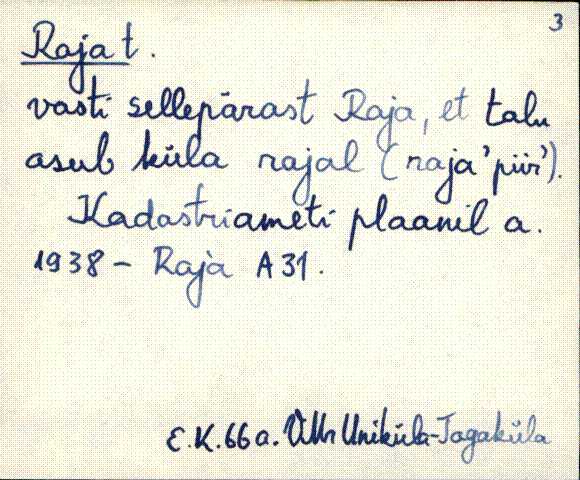 3
Raja t.
vasti sellepärast Raja, et talu
asub küla rajal (raja 'piir').
Kadastriameti plaanil a.
1938 - Raja A 31.
E.K. 66 a. VMr Uniküla-Tagaküla